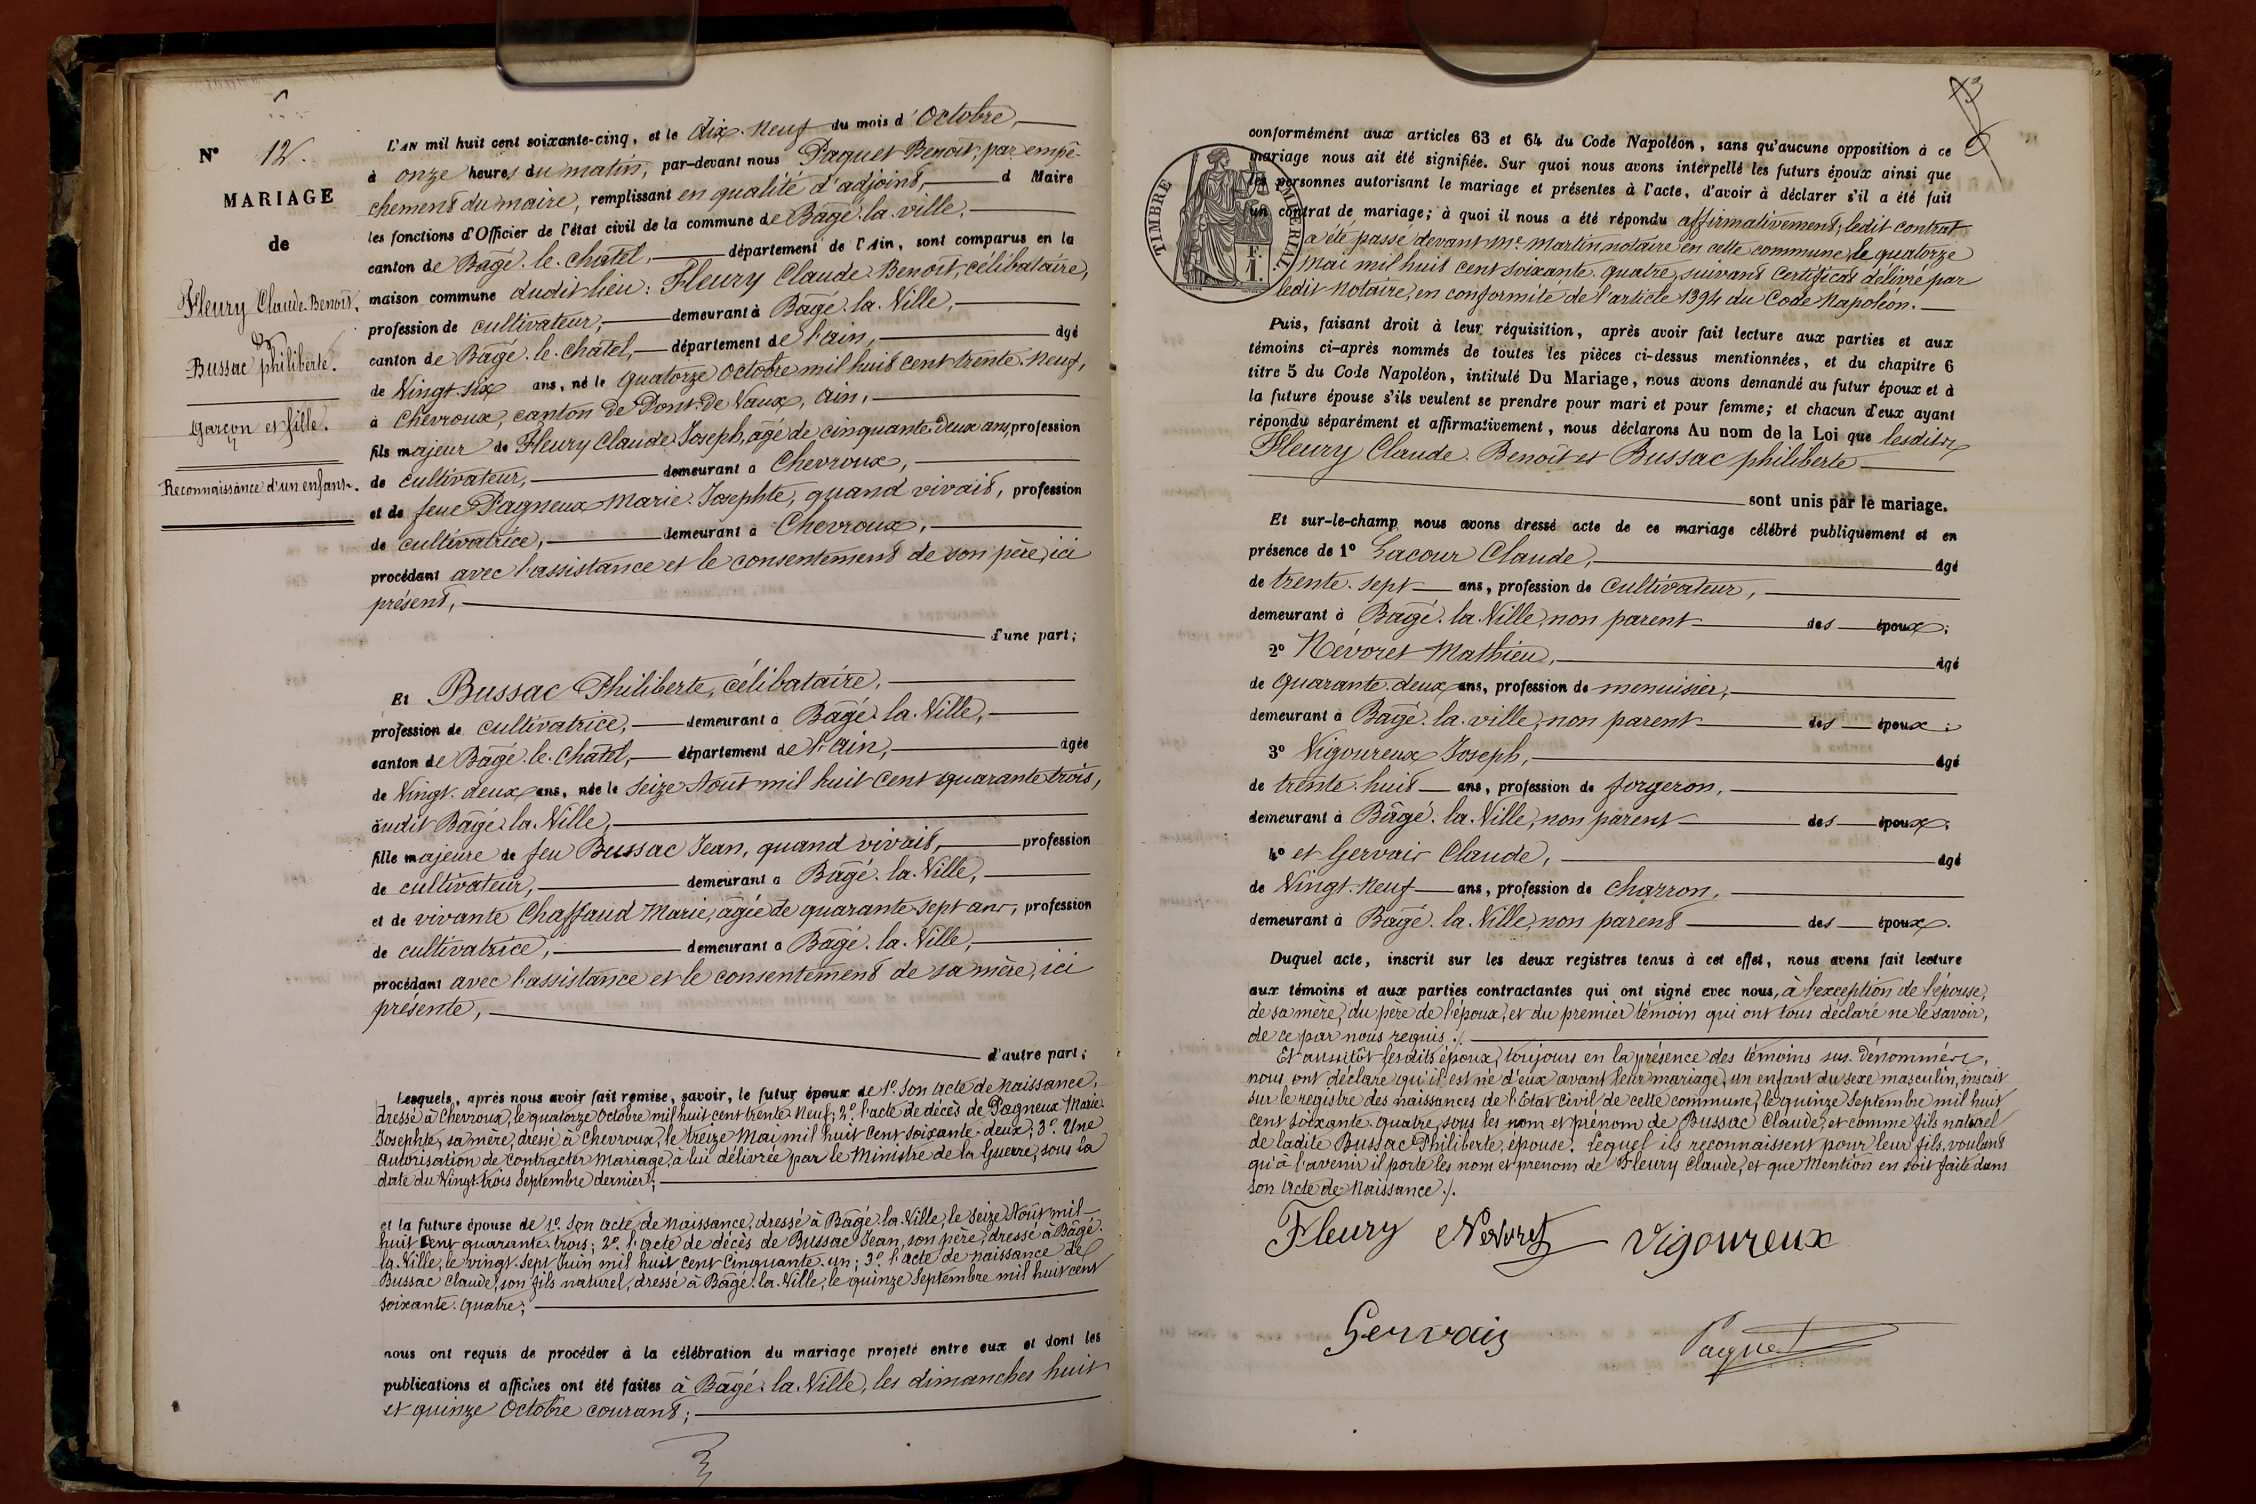 N° 12.
MARIAGE
de
Fleury Claude-Benoît.
&
Bussac philiberte.
garçon et fille.
Reconnaissance d'un enfant.
L'AN mil huit cent soixante-cinq, et le dix-neuf du mois d'Octobre,
à onze heures du matin, par-devant nous Paquet Benoît, par empê-
chement du maire, remplissant en qualité d'adjoint, d Maire
les fonctions d'Officier de l'état civil de la commune de Bâgé-la-ville,
canton de Bâgé-le-chatel, département de l'Ain, sont comparus en la
maison commune dudit lieu : Fleury Claude-Benoît, célibataire,
profession de cultivateur, demeurant à Bâgé-la-Ville,
canton de Bâgé-le-chatel, département de l'ain, âgé
de Vingt-six ans, né le quatorze octobre mil huit cent trente-neuf,
à Chevroux, canton de Pont-de-Vaux, ain,
fils majeur de Fleury Claude-Joseph, âgé de cinquante-deux ans, profession
de cultivateur, demeurant à Chevroux,
et de feue Pagneux Marie-Josephte, quand vivait, profession
de cultivatrice, demeurant à Chevroux,
procédant avec l'assistance et le consentement de son père, ici
présent,
d'une part;
Et Bussac Philiberte, célibataire,
profession de cultivatrice, demeurant à Bâgé-la-Ville,
canton de Bâgé-le-chatel, département de l'Ain, âgée
de Vingt-deux ans, née le seize Août mil huit cent quarante trois,
audit Bâgé-la-Ville,
fille majeure de feu Bussac Jean, quand vivait, profession
de cultivateur, demeurant à Bâgé-la-Ville,
et de vivante Chaffaud Marie, âgée de quarante-sept ans, profession
de cultivatrice, demeurant à Bâgé-la-Ville,
procédant avec l'assistance et le consentement de sa mère, ici
présente,
d'autre part;
Lesquels, après nous avoir fait remise, savoir, le futur époux de 1° Son acte de naissance,
dressé à Chevroux, le quatorze Octobre mil huit cent trente-neuf; 2° l'acte de décès de Pagneux Marie-
Josephte, sa mère, dressé à Chevroux, le treize Mai mil huit cent soixante-deux; 3° Une
autorisation de contracter Mariage, à lui délivrée par le Ministre de la Guerre, sous la
date du Vingt-trois Septembre dernier;
et la future épouse de 1° Son acte de naissance, dressé à Bâgé-la-Ville, le seize Août mil
huit cent quarante-trois; 2° l'acte de décès de Bussac Jean, son père, dressé à Bâgé-
la-Ville, le vingt-sept Juin mil huit cent cinquante-un; 3° l'acte de naissance de
Bussac Claude, son fils naturel, dressé à Bâgé-la-Ville, le quinze Septembre mil huit cent
soixante-quatre;
nous ont requis de procéder à la célébration du mariage projeté entre eux et dont les
publications et affiches ont été faites à Bâgé-la-Ville, les dimanches huit
et quinze Octobre courant;
TIMBRE IMPERIAL
1 F.
conformément aux articles 63 et 64 du Code Napoléon, sans qu'aucune opposition à ce
mariage nous ait été signifiée. Sur quoi nous avons interpellé les futurs époux ainsi que
les personnes autorisant le mariage et présentes à l'acte, d'avoir à déclarer s'il a été fait
un contrat de mariage; à quoi il nous a été répondu affirmativement; ledit contrat
a été passé devant Me Martin notaire en cette commune, le quatorze
Mai mil huit cent soixante-quatre, suivant certificat délivré par
ledit notaire, en conformité de l'article 1394 du Code Napoléon.
Puis, faisant droit à leur réquisition, après avoir fait lecture aux parties et aux
témoins ci-après nommés de toutes les pièces ci-dessus mentionnées, et du chapitre 6
titre 5 du Code Napoléon, intitulé Du Mariage, nous avons demandé au futur époux et à
la future épouse s'ils veulent se prendre pour mari et pour femme; et chacun d'eux ayant
répondu séparément et affirmativement, nous déclarons Au nom de la Loi que lesdits
Fleury Claude-Benoît et Bussac philiberte
sont unis par le mariage.
Et sur-le-champ nous avons dressé acte de ce mariage célébré publiquement et en
présence de 1° Lacour Claude, âgé
de trente-sept ans, profession de Cultivateur,
demeurant à Bâgé-la-Ville, non parent des époux;
2° Névoret Mathieu, âgé
de quarante-deux ans, profession de menuisier,
demeurant à Bâgé-la-ville, non parent des époux;
3° Vigoureux Joseph, âgé
de trente-huit ans, profession de forgeron,
demeurant à Bâgé-la-Ville, non parent des époux;
4° et Gervais Claude, âgé
de Vingt-neuf ans, profession de charron,
demeurant à Bâgé-la-Ville, non parent des époux.
Duquel acte, inscrit sur les deux registres tenus à cet effet, nous avons fait lecture
aux témoins et aux parties contractantes qui ont signé avec nous, à l'exception de l'épouse,
de sa mère, du père de l'époux, et du premier témoin qui ont tous déclaré ne le savoir,
de ce par nous requis ./.
Et aussitôt lesdits époux, toujours en la présence des témoins sus-dénommés,
nous ont déclaré qu'il est né d'eux avant leur mariage, un enfant du sexe masculin, inscrit
sur le registre des naissances de l'Etat Civil de cette commune, le quinze Septembre mil huit
cent soixante-quatre, sous les nom et prénom de Bussac Claude, et comme fils naturel
de ladite Bussac Philiberte, épouse. Lequel ils reconnaissent pour leur fils, voulant
qu'à l'avenir il porte les nom et prenom de Fleury Claude, et que Mention en soit faite dans
son Acte de Naissance ./.
Fleury Nevoret Vigoureux
Gervais Paquet